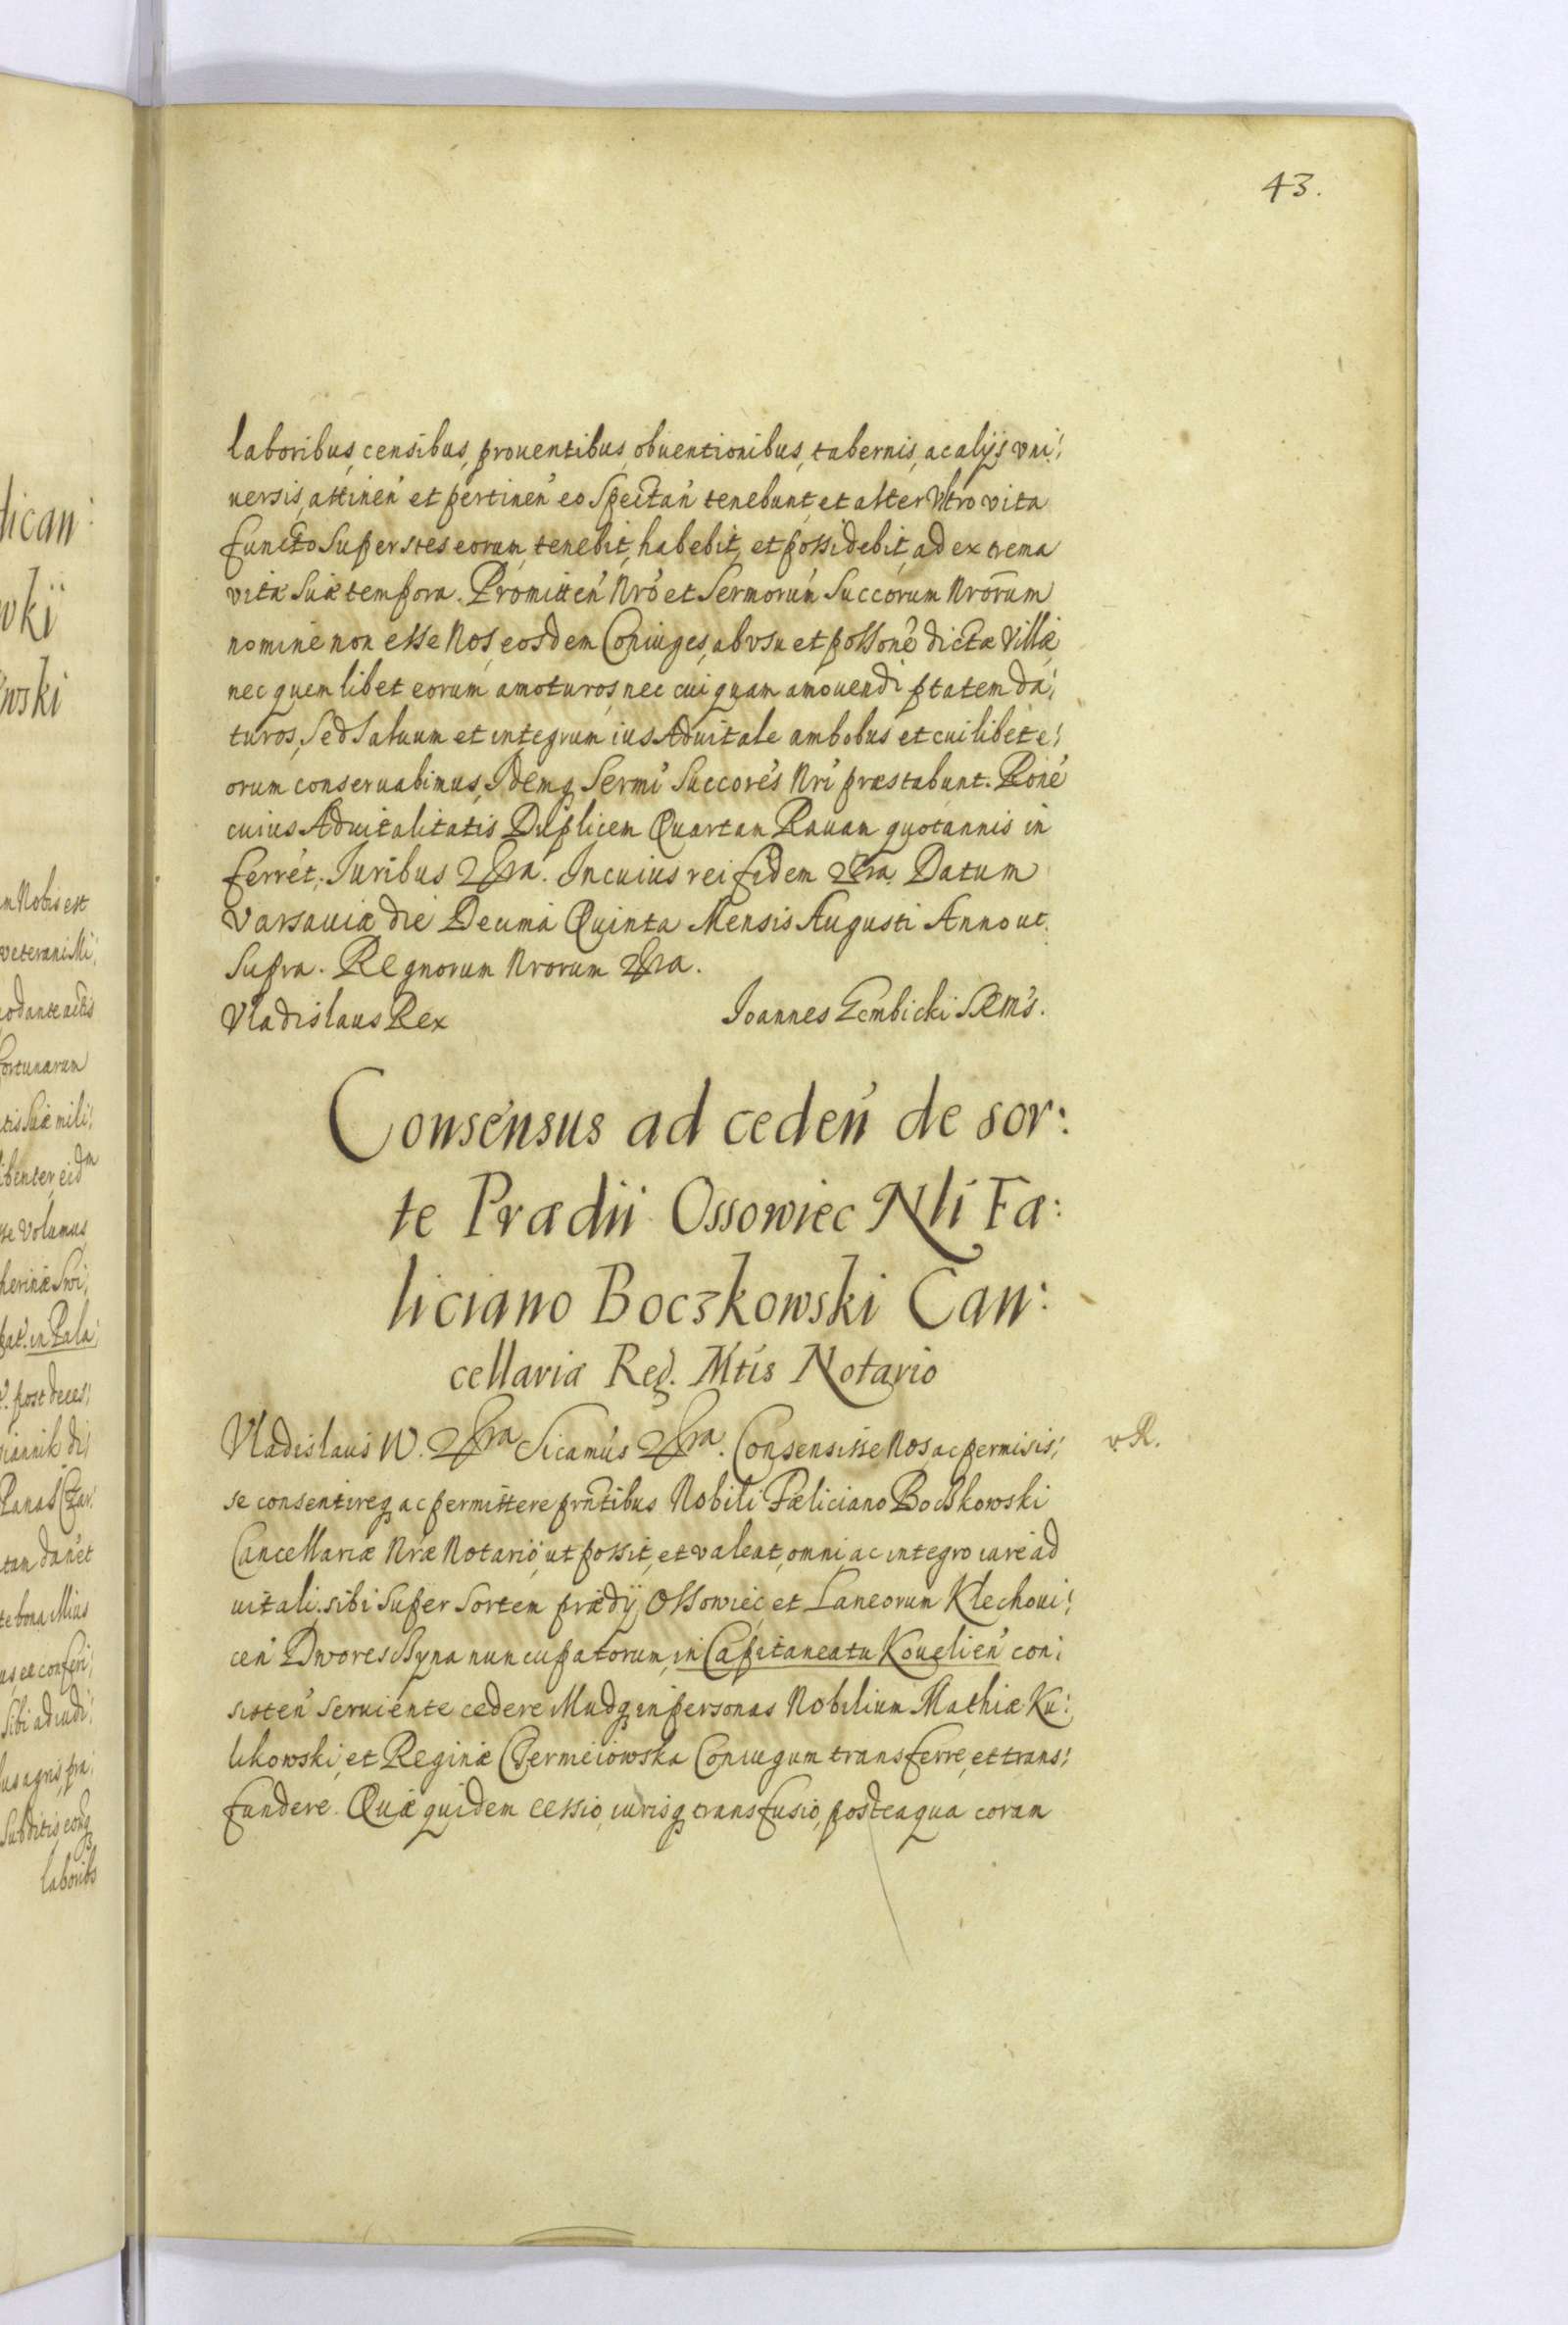 43.
laboribus, censibus, prouentibus, obuentionibus, tabernis, ac alijs vni:
uersis, attinen' et pertinen' eo Spectan' tenebunt, et alter Vtro vita
functo Superstes eorum, tenebit, habebit, et possidebit, ad extrema
vitæ Suæ tempora. Promitten' Nro' et Sermorum' Succorum Nrorum
nomine non esse Nos, eosdem Coniuges, ab vsu et possone' dictæ Villæ
nec quem libet eorum amoturos, nec cuiquam amouendi ptatem da:
turos, Sed Saluum et integrum ius Aduitale ambobus et cuilibet e:
orum conseruabimus, Idemq Sermi' Succores' Nri' præstabunt. Rone'
cuius Aduitalitatis Duplicem Quartam Rauam quotannis in
ferret. Iuribus &ra. In cuius rei fidem &ra. Datum
Varsauiæ die Decima Quinta Mensis Augusti Anno ut
Supra. Regnorum Nrorum &ra.
Vladislaus Rex Ioannes Gembicki
Consensus ad ceden' de sor:
te Prædii Ossowiec Nli Fæ:
liciano Boczkowski Can:
cellariæ Reg. Mtis Notario
Vladislaus IV. &ra Sicamus' &ra. Consensisse Nos ac permisis:
vR.
se consentireq ac permittere prntibus Nobili Fæliciano Boczkowski
Cancellariæ Nræ Notario, ut possit, et valeat, omni, ac integro iure ad
uitali, sibi Super Sortem prædij Ossowiec, et Laneorum Klechoui:
cen' nuncupatorum, in Capitaneatu Kouelien' con:
sisten' seruiente cedere Illudq in personas Nobilium Mathiæ Ku:
likowski, et Reginæ Czermciowska Coniugum transferre, et trans:
fundere. Quæ quidem cessio, iurisq transfusio, posteaqua coram